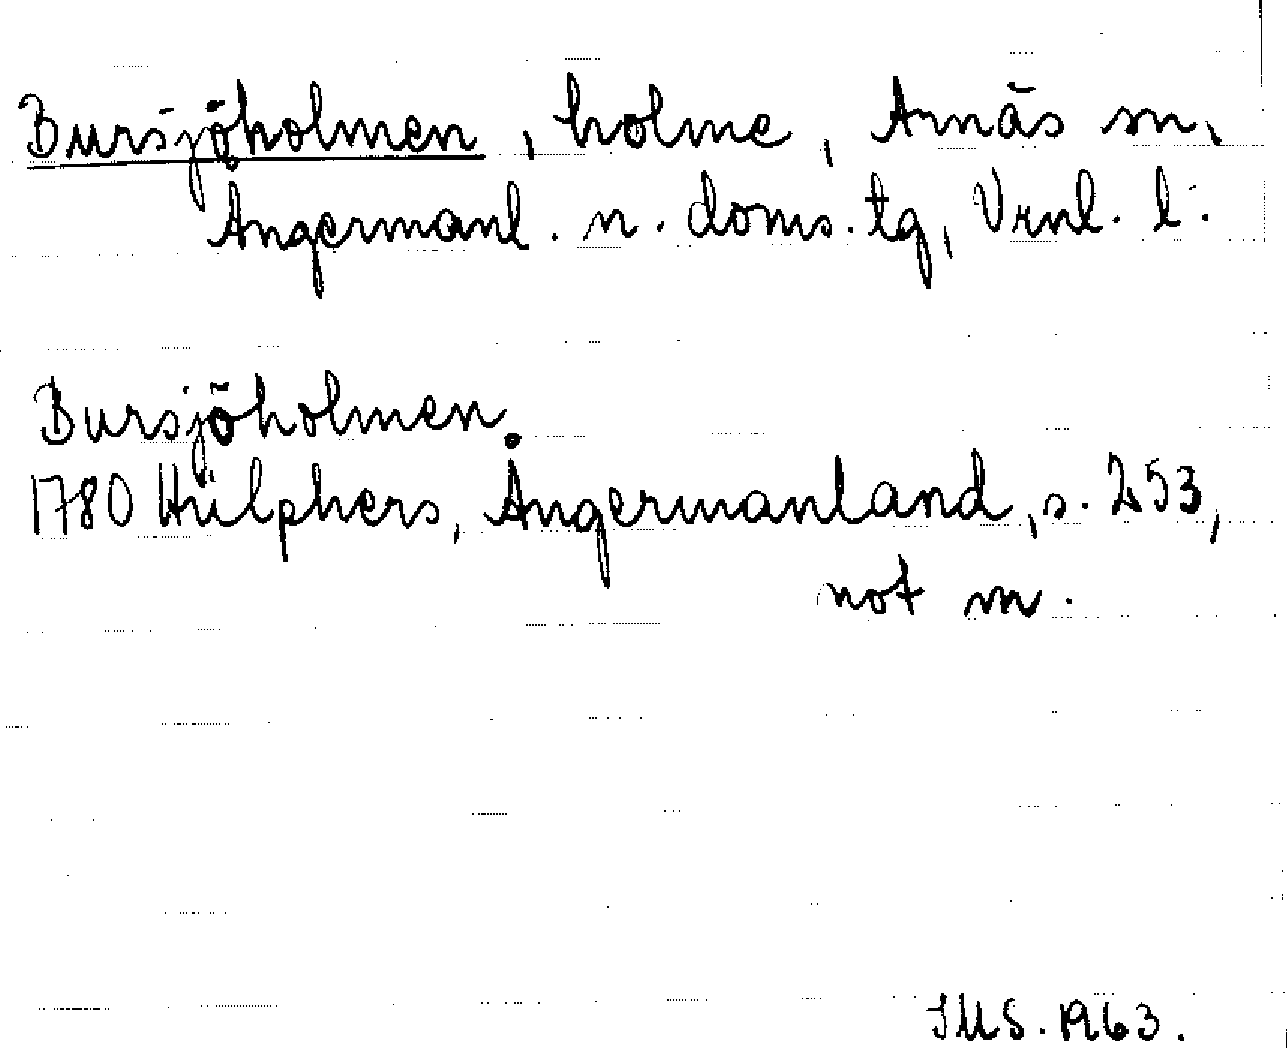 Bursjöholmen, holme, Arnäs sn,
Ångermanl. n. doms. tg, Vrnl. l.
Bursjöholmen.
1780 Hülphers, Ångermanland, s. 253,
not m.
IMS. 1963.